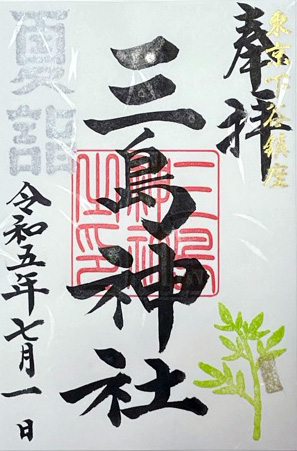 東京下谷鎮座
奉拝
三島神社
三島神社之印
夏詣
令和五年七月一日